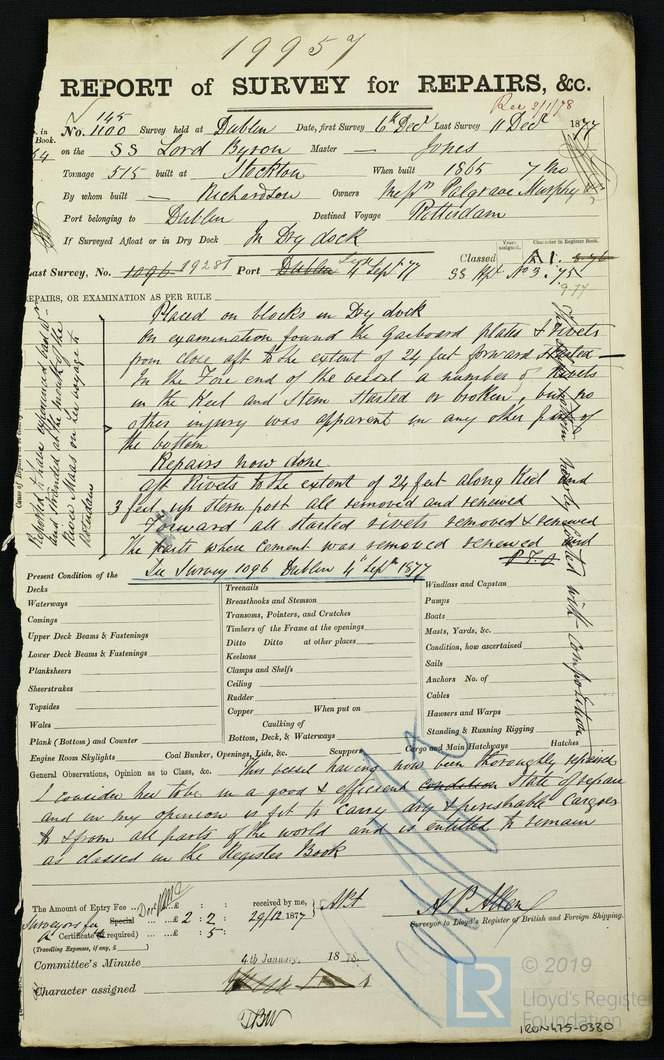 19957
REPORT of SURVEY for REPAIRS, &c.
Rec 2/1/78
145
No. 1100 Survey held at Dublin Date, first Survey 6th Decr Last Survey 11 Decr 1877
on the SS Lord Byron Master — Jones
Tonnage 515 built at Stockton When built 1865 7 Mo
By whom built — Richardson Owners Messrs Palgrave Murphy
Port belonging to Dublin Destined Voyage Rotterdam
If Surveyed Afloat or in Dry Dock In Dry dock
Years assigned. Character in Register Book.
Last Survey, No. 1096 19281 Port Dublin 4 Sept 77 Classed A 1.
SS Rpt No 3. 75
9.77
REPAIRS, OR EXAMINATION AS PER RULE
Placed on blocks in Dry dock
On examination found the Garboard plates & Rivets
from close aft to the extent of 24 feet forward started —
In the Fore end of the vessel a number of Rivets
in the Keel and Stem Started or broken, but no
other injury was apparent in any other part of
the bottom
Repairs now done
aft Rivets to the extent of 24 feet along Keel and
3 feet up Stern post all removed and renewed
Forward all started rivets removed & renewed
The parts where cement was removed renewed and
P.T.O
See Survey 1096 Dublin 4th Septr 1877
Reported to have experienced bad
and stranded at the mouth of the
River Maas on her voyage to
Rotterdam
bottom newly coated with composition
Present Condition of the
Decks
Waterways
Comings
Upper Deck Beams & Fastenings
Lower Deck Beams & Fastenings
Planksheers
Sheerstrakes
Topsides
Wales
Plank (Bottom) and Counter
Engine Room Skylights
Treenails
Breasthooks and Stemson
Transoms, Pointers, and Crutches
Timbers of the Frame at the openings
Ditto Ditto at other places
Keelsons
Clamps and Shelfs
Ceiling
Rudder
Copper When put on
Caulking of
Bottom, Deck, & Waterways
Coal Bunker, Openings, Lids, &c. Scuppers
Windlass and Capstan
Pumps
Boats
Masts, Yards, &c.
Condition, how ascertained
Sails
Anchors No. of
Cables
Hawsers and Warps
Standing & Running Rigging
Cargo and Main Hatchways Hatches
General Observations, Opinion as to Class, &c. This vessel having now been thoroughly repaired
I consider her to be in a good & efficient condition State of repair
and in my opinion is fit to carry dry & perishable Cargoes
to & from all parts of the world and is entitled to remain
as classed in the Register Book
The Amount of Entry Fee ... £ : : received by me,
Surveyors fee Special ... £ 2 : 2 : 29/12 1877
Certificate (if required) ... £ : 5 :
(Travelling Expenses, if any, £ )
A. P. Allen
Surveyor to Lloyd's Register of British and Foreign Shipping.
Committee's Minute 4th January, 1878
Character assigned
LR © 2019
Lloyd's Register
Foundation
IRON475-0330